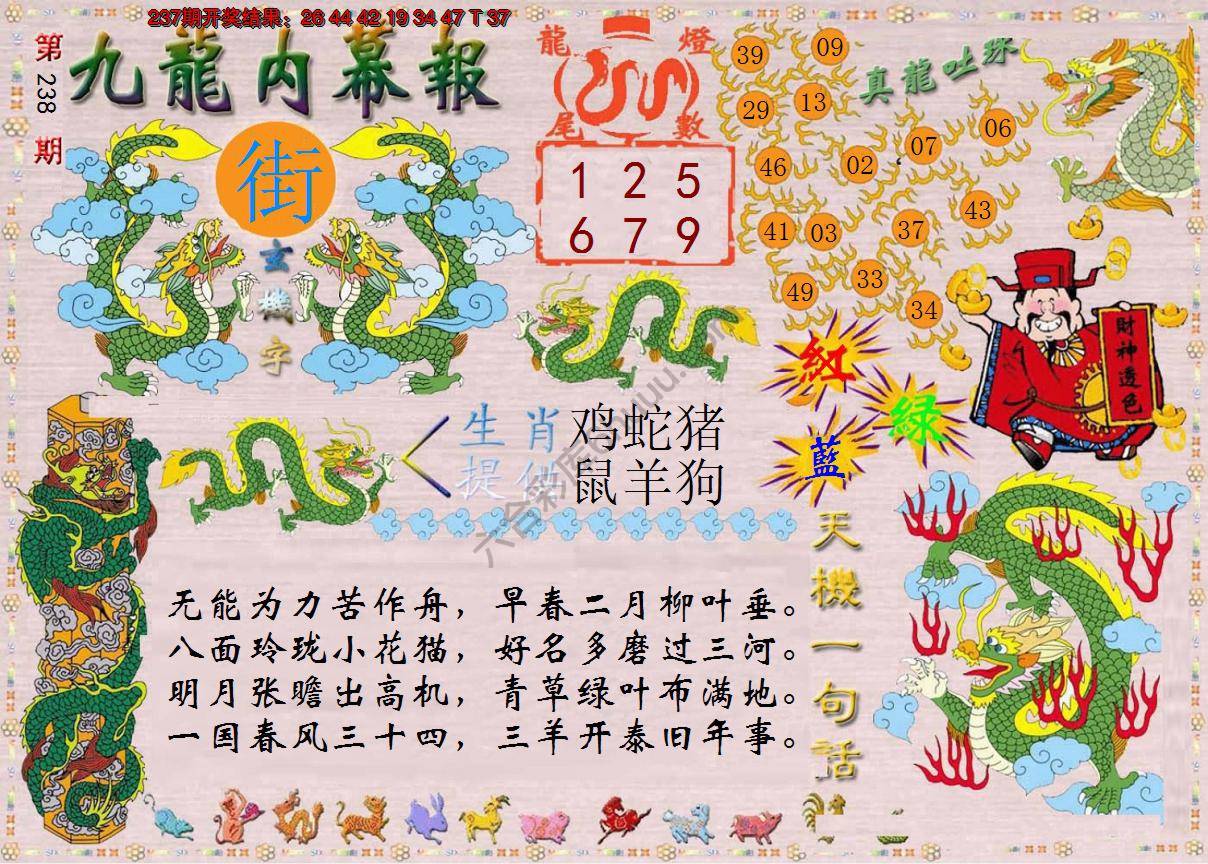 237期开奖结果：26 44 42 19 34 47 T 37
第238期
九龍内幕報
街
玄機字
龍燈
尾數
1 2 5
6 7 9
真龍吐珠
39 09
29 13
46 02 07 06
41 03 37 43
49 33 34
財神透色
紅
綠
藍
生肖 鸡蛇猪
提供 鼠羊狗
无能为力苦作舟，早春二月柳叶垂。
八面玲珑小花猫，好名多磨过三河。
明月张瞻出高机，青草绿叶布满地。
一国春风三十四，三羊开泰旧年事。
天機一句话